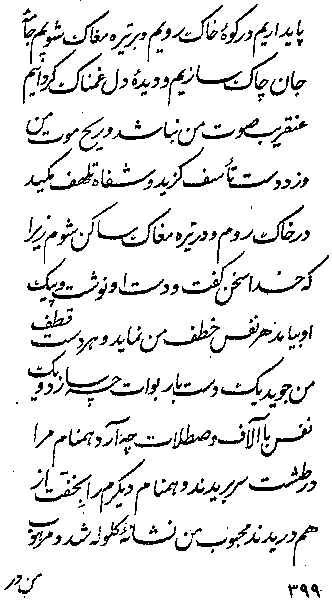 پایداریم در کوهٔ خاک رویم و بر تیره مغاک شویم جآئی
جان چاک سازیم و دیدهٔ دل غمناک کردآئیم
عنقریب صوت من نباشد و ریح موت من
وزد دست تأسف کزید و شفاه تلهف مکید
در خاک روم و در تیره مغاک ساکن شوم زیرا
که خدا سخن گفت و دست او نوشت و پیک
او بیامد هر نفس خطف من نماید و هر دست قطف
من جوید یک دست با ربوات چه سازد و یک
نفس با آلاف و صطلات چه آرد همنام مرا
در طشت سر بریدند و همنام دیکرم را بخفت از
هم دریدند محبوب من نشانهٔ کلوله شد و مرهوب
۳۹۹
من در